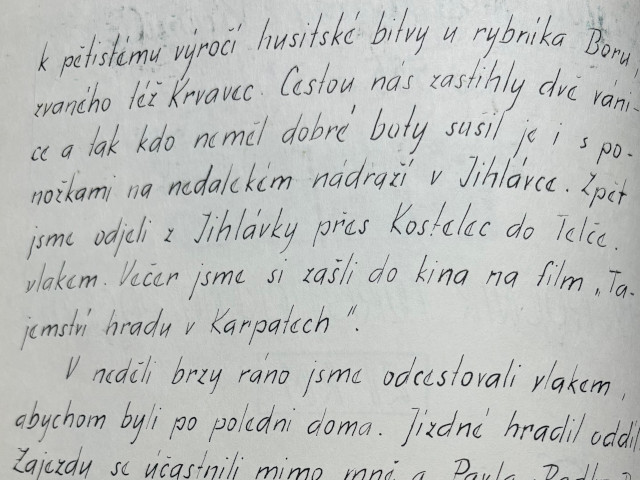 k pětistému výročí husitské bitvy u rybníka Boru,
zvaného též Krvavec. Cestou nás zastihly dvě váni-
ce a tak kdo neměl dobré boty sušil je i s po-
nožkami na nedalekém nádraží v Jihlávce. Zpět
jsme odjeli z Jihlávky přes Kostelec do Telče.
vlakem. Večer jsme si zašli do kina na film „Ta-
jemství hradu v Karpatech".
V neděli brzy ráno jsme odcestovali vlakem,
abychom byli po poledni doma. Jízdné hradil oddíl
Zájezdu se účastnili mimo mně a Pavla